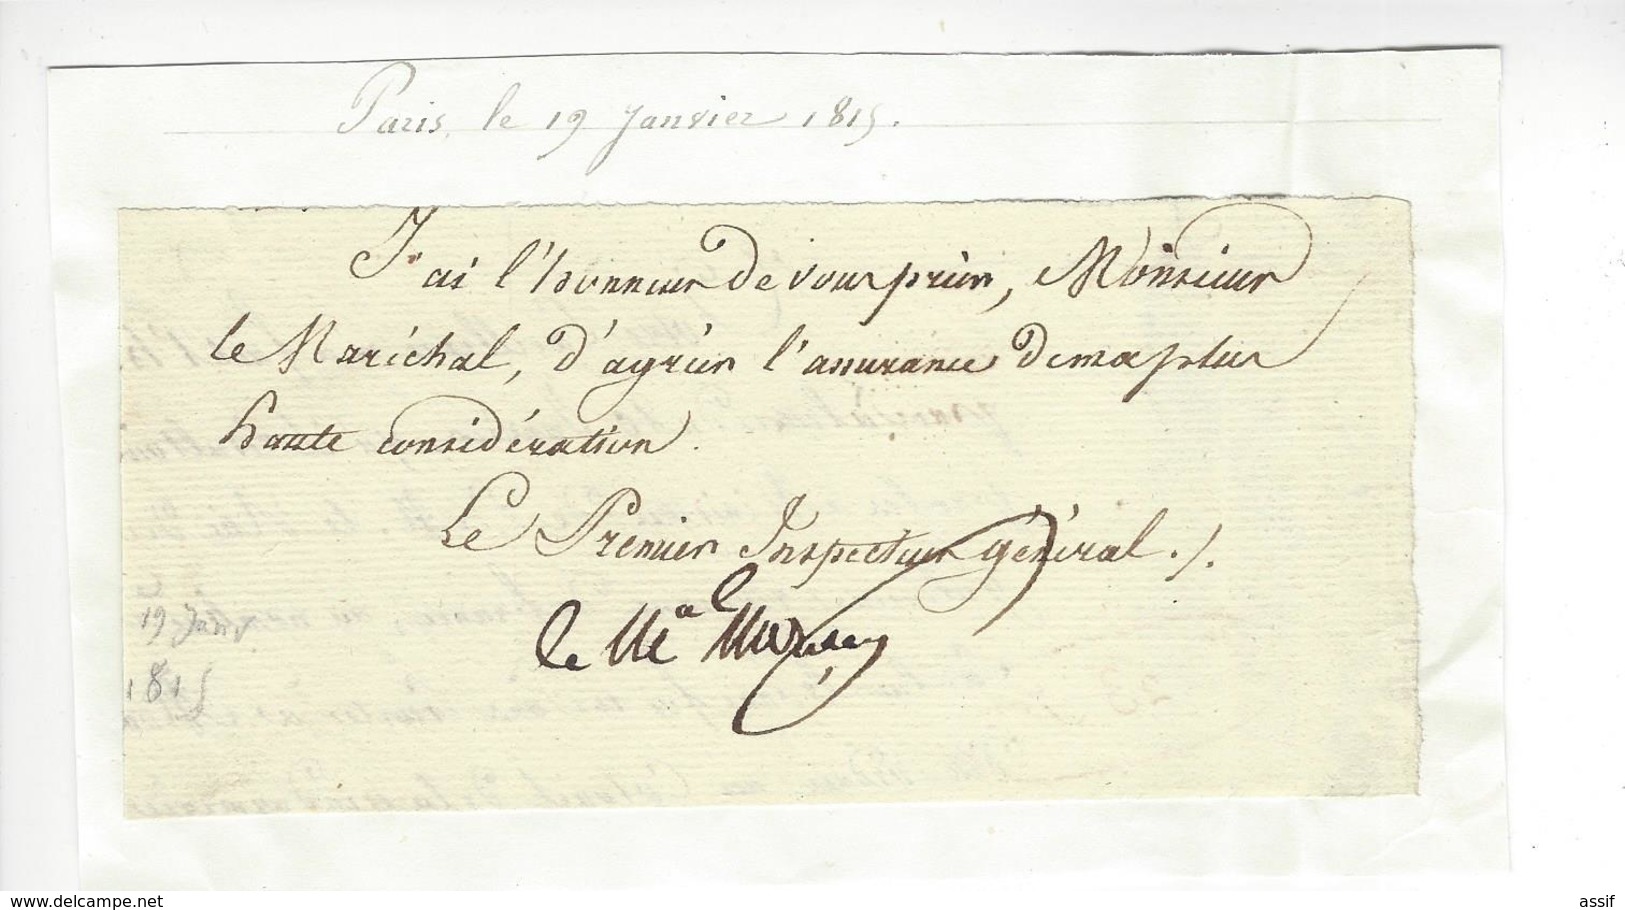 Paris, le 19 Janvier 1815.
J'ai l'honneur de vous prier, Monsieur
le Maréchal, d'agréer l'assurance de ma plus
haute considération.
Le Premier Inspecteur général ./.
le Mal Moncey
19 Janv
1815
23
www.delcampe.net
assif